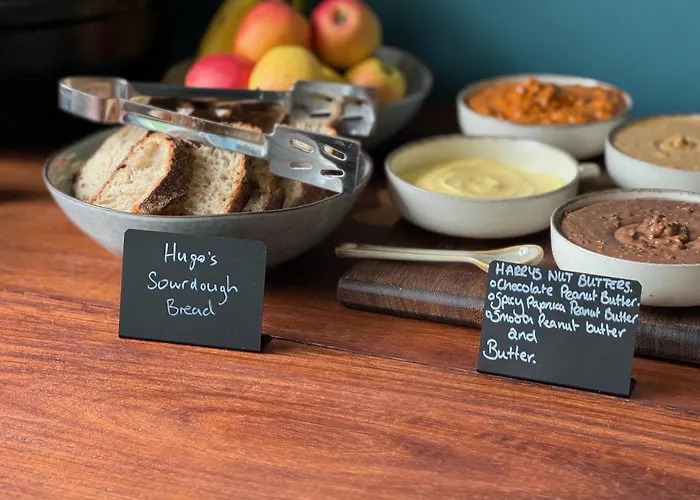 Hugo's
Sourdough
Bread
HARRYS NUT BUTTERS.
o Chocolate Peanut Butter.
o Spicy Paprika Peanut Butter
o Smooth Peanut butter
and
Butter.